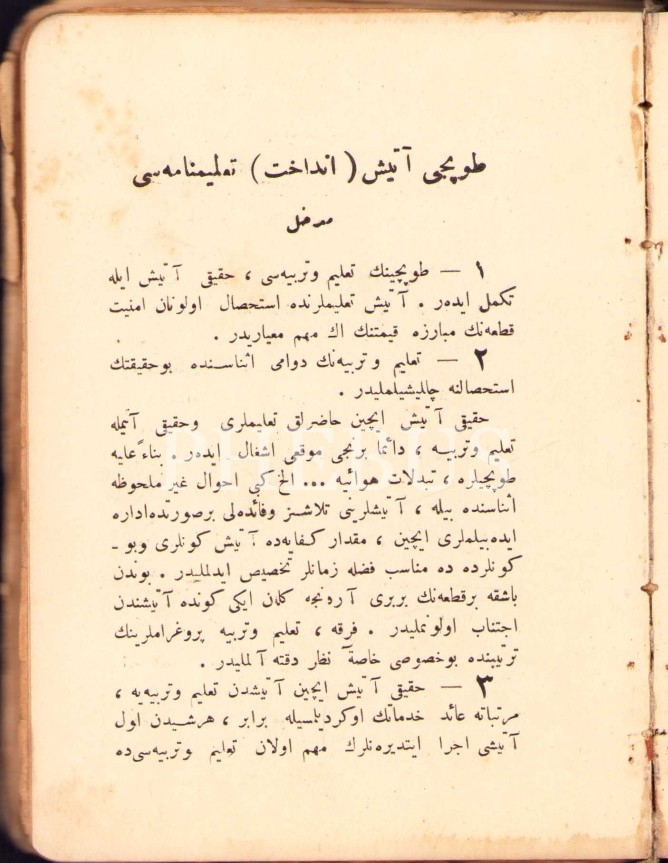 طوپجی آتيش ( انداخت ) تعليمنامه‌سی
مدخل
١ — طوپجينك تعليم وتربيه‌سی ، حقيقی آتيش ايله
تكمل ايده‌ر . آتيش تعليملرنده استحصال اولونان امنيت
قطعه‌نك مبارزه قيمتنك اك مهم معياريدر .
٢ — تعليم وتربيه‌نك دوامی اثناسنده بوحقيقتك
استحصالنه چاليشيلمليدر .
حقيقی آتيش ايچين حاضرلق تعليملری وحقيقی آتيمله
تعليم وتربيه ، دائما برنجی موقعی اشغال ايده‌ر . بناءً عليه
طوپجيلره ، تبدلات هوائيه ... الخ كبی احوال غير ملحوظه
اثناسنده بيله ، آتيشلرينی تلاشسز وفائده‌لی برصورتده اداره
ايده‌بيلملری ايچين ، مقدار كفايه‌ده آتيش كونلری وبو ـ
كونلرده ده مناسب فضله زمانلر تخصيص ايدلمليدر . بوندن
باشقه برقطعه‌نك بربری آردنجه كلان ايكی كونده آتيشندن
اجتناب اولونمليدر . فرقه ، تعليم وتربيه پروغراملرينك
ترتيبنده بوخصوصی خاصةً نظر دقته آلمليدر .
٣ — حقيقی آتيش ايچين آتيشدن تعليم وتربيه‌يه ،
مرتباته عائد خدماتك اوكرديلسيله برابر ، هرشيدن اول
آتيشی اجرا ايتديره‌نلرك مهم اولان تعليم وتربيه‌سی‌ده
PHEBUS